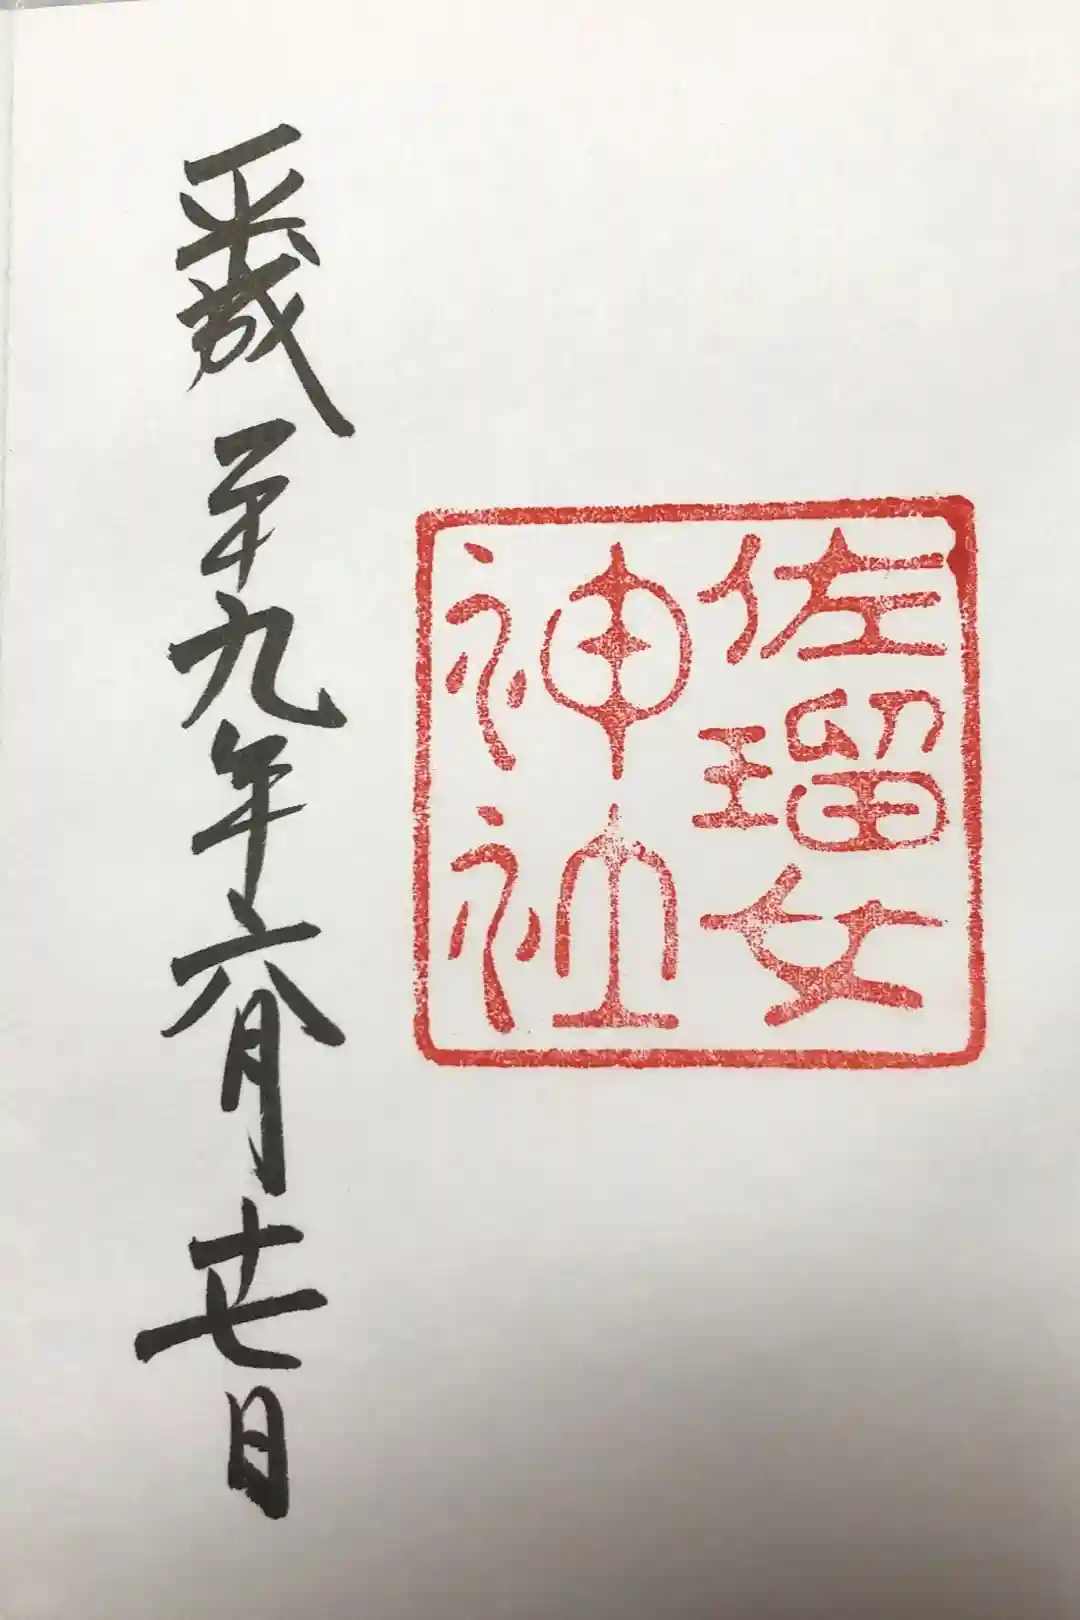 佐瑠女
神社
平成二十九年六月十七日